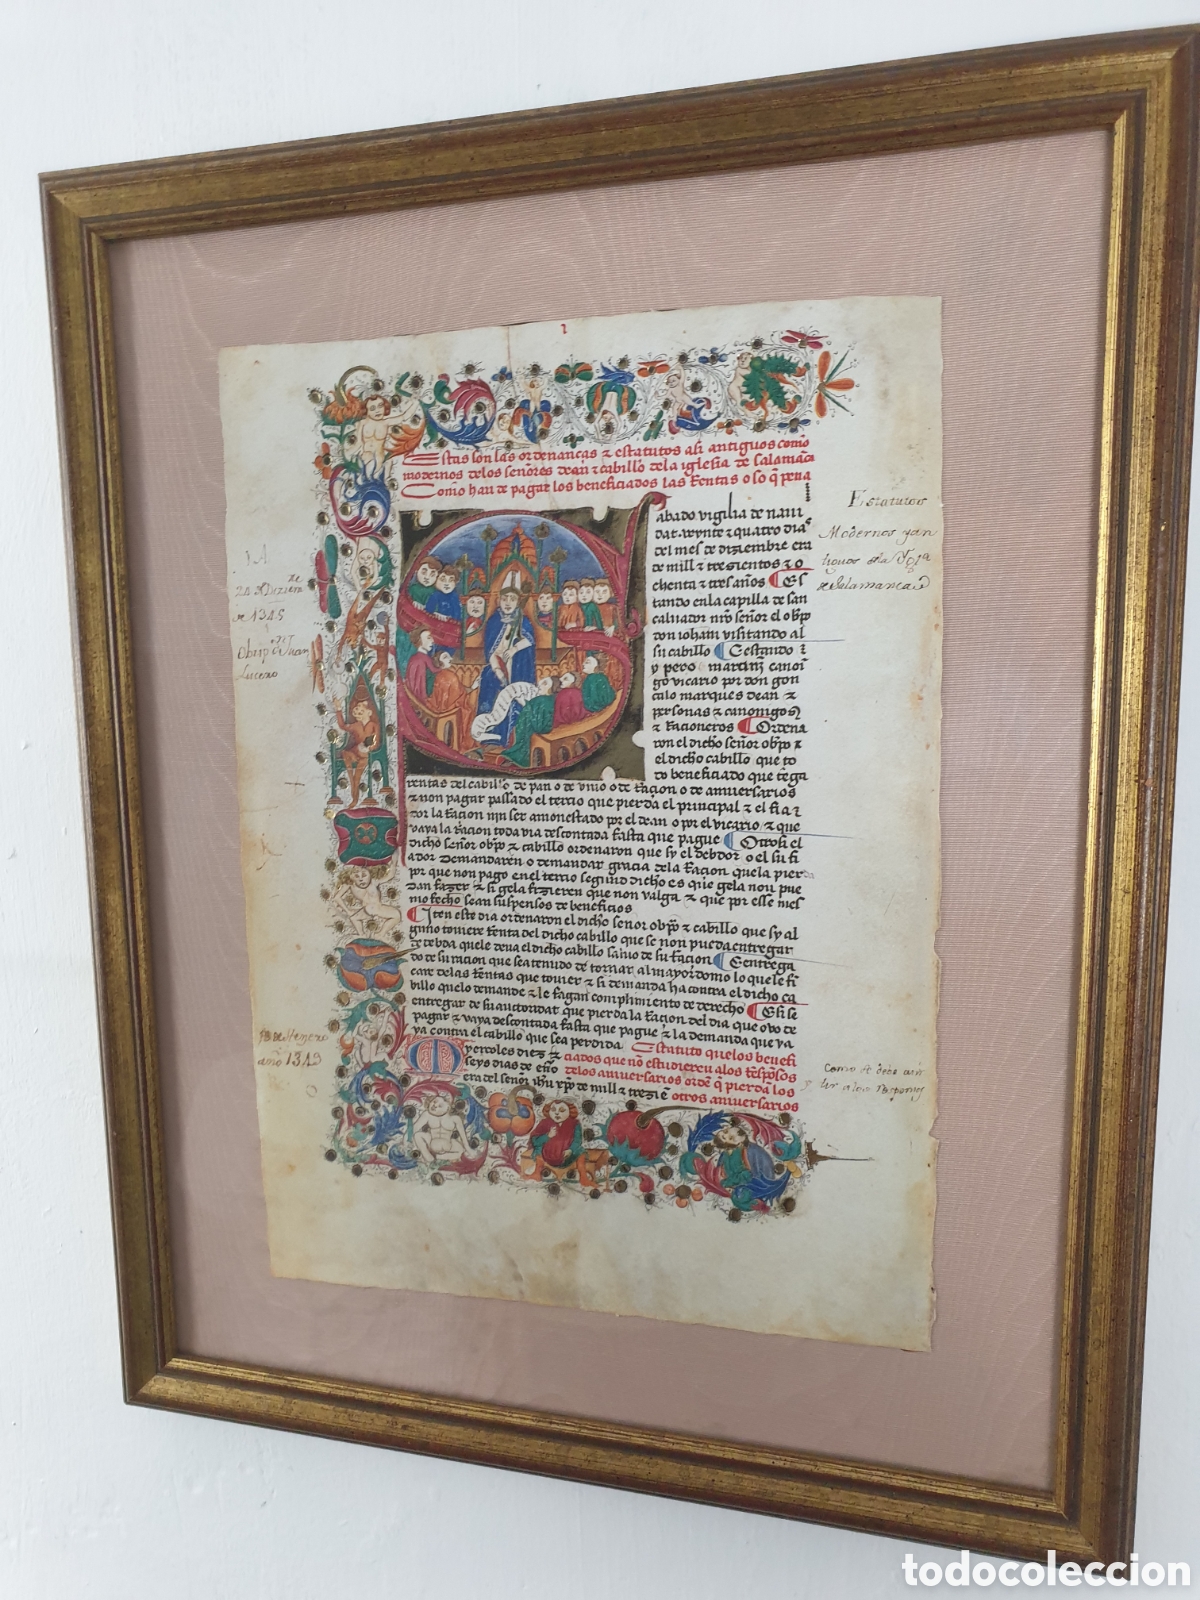 1
Estas son las ordenanças & estatutos asi antiguos como
modernos delos señores dean & cabillo dela iglesia de salamāca
Como han de pagar los beneficiados las Rentas o so q̄ pena
Sabado vigilia de naui
dat veynte & quatro dias
del mes de diziembre era
de mill & trezientos & o
chenta & tres años Es
tando enla capilla de san
saluador nr̄o señor el obp̄o
don ioham visitando al
su cabillo E estando
y pero martinz canoni
go vicario por don gon
calo marques dean &
personas & canonigos
& Racioneros Ordena
ron el dicho señor obp̄o &
el dicho cabillo que to
do beneficiado que tēga
rentas del cabillo de pan o de vino o de Racion o de aniuersarios
& non pagar passado el tercio que pierda el principal & el fia
dor la Racion nin ser amonestado por el dean o por el vicario & que
vaya la Racion toda via descontada fasta que pague Otrosi el
dicho señor obp̄o & cabillo ordenaron que sy el debdor o el su fi
ador Demandaren o demandar gracia dela Racion quela pierda
por que non pago en el tercio segund dicho es que gela non pue
dan fazer & si gela fizieren que non valga & que por esse mes
mo fecho sean suspensos de beneficios
Iten este dia ordenaron el dicho señor obp̄o & cabillo que sy al
guno touiere Renta del dicho cabillo que se non pueda entregar
de debda quele deua el dicho cabillo saluo de su Racion E entrega
do de su racion que sea tenudo de tornar al mayordomo lo quele fi
care de las Rentas que touier & si demanda ha contra el dicho ca
billo quelo demande & le fagan complimiento de derecho E si se
entregar de su autoridat que pierda la Racion del dia que ovo de
pagar & vaya descontada fasta que pague & la demanda que ya
ya contra el cabillo que sea perdida Estatuto quelos benefi
Myercoles diez & ciados que nō estudieren alos Respōsos
seys dias de eño delos aniuersarios ordē q̄ pierdā los
era del señor ihū xp̄o de mill & trezie otros aniuersarios
Estatutos
Modernos y an
tiguos de la Ygla
de Salamanca
1 A
24 de Deziem
de 1345
Obispo D. Juan
Lucero
de Henero
año 1349
Como se debe asis
tir a los Responsos
todocoleccion